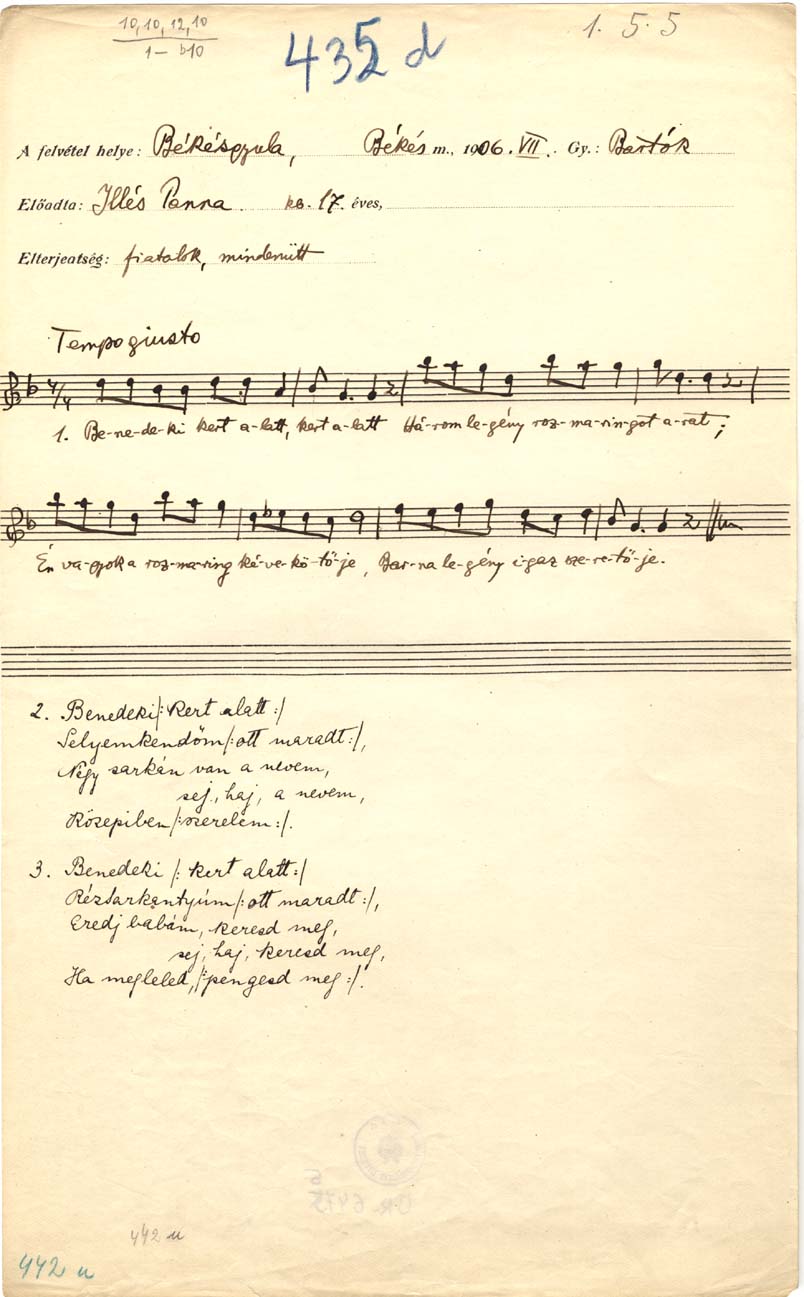 10, 10, 12, 10
1 – b10
435 d
1. 5. 5
A felvétel helye: Békésgyula, Békés m., 1906. VII. Gy.: Bartók
Előadta: Illés Panna kb. 17. éves,
Elterjedtség: fiatalok, mindenütt
Tempo giusto
1. Be-ne-de-ki kert a-latt, kert a-latt Há-rom le-gény roz-ma-rin-got a-rat;
Én va-gyok a roz-ma-ring ké-ve-kö-tő-je, Bar-na le-gény i-gaz sze-re-tő-je.
2. Benedeki /: kert alatt :/
Selyemkendőm /: ott maradt :/,
Négy sarkán van a nevem,
sej, haj, a nevem,
Közepiben /: szerelem :/.
3. Benedeki /: kert alatt :/
Rézsarkantyúm /: ott maradt :/,
Eredj babám, keresd meg,
sej, haj, keresd meg,
Ha megleled, /: pengesd meg :/.
442 u
442 u